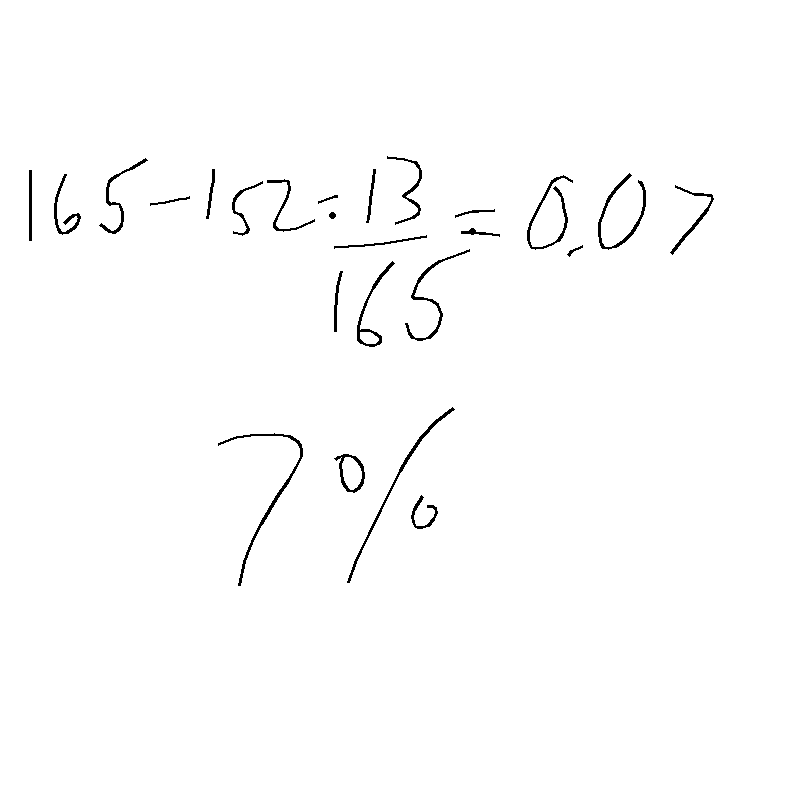 165-152=13/165=0.07
7%